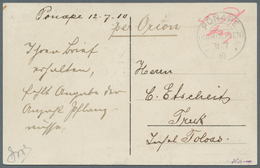 Ponape 12.7.10
per Orion
Ihren Brief
erhalten,
fehlt Angabe der
Anzahl Pflanz-
nüsse.
Herrn
C. Etscheit
Truk
Insel Toloas